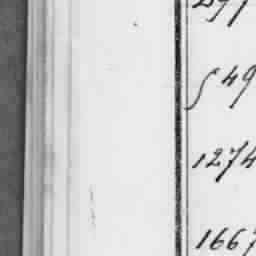 297
49
1274
1667